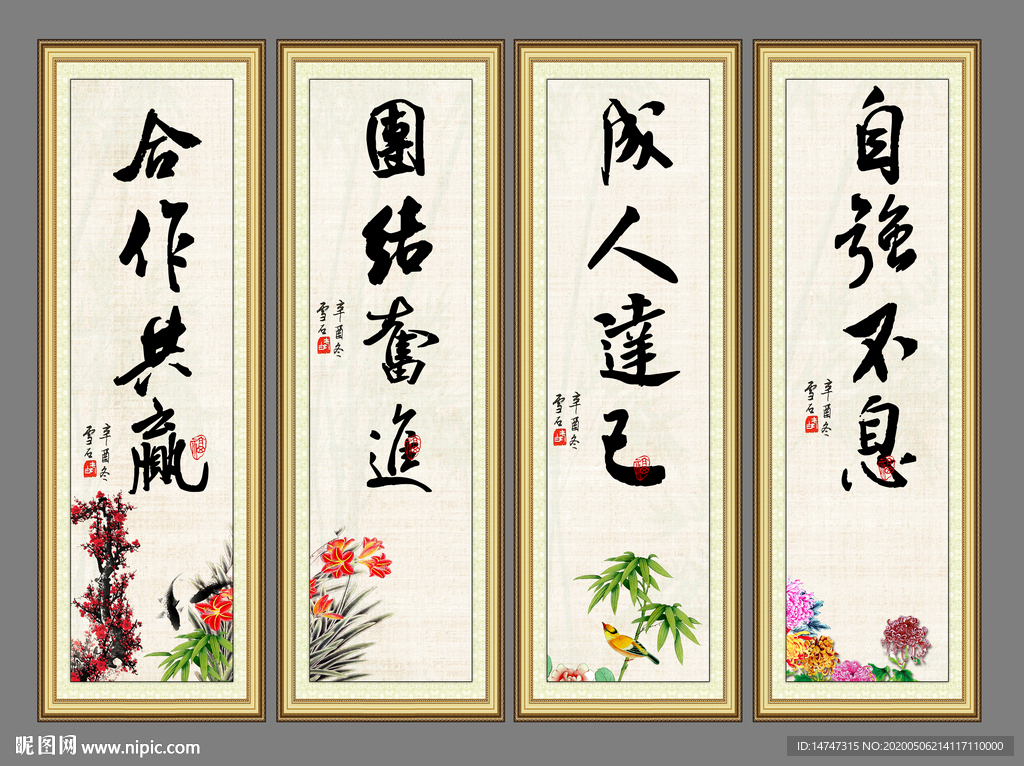 合作共赢
辛酉冬
雪石
團结奮進
辛酉冬
雪石
成人達己
辛酉冬
雪石
自強不息
辛酉冬
雪石
昵图网 www.nipic.com
ID:14747315 NO:20200506214117110000